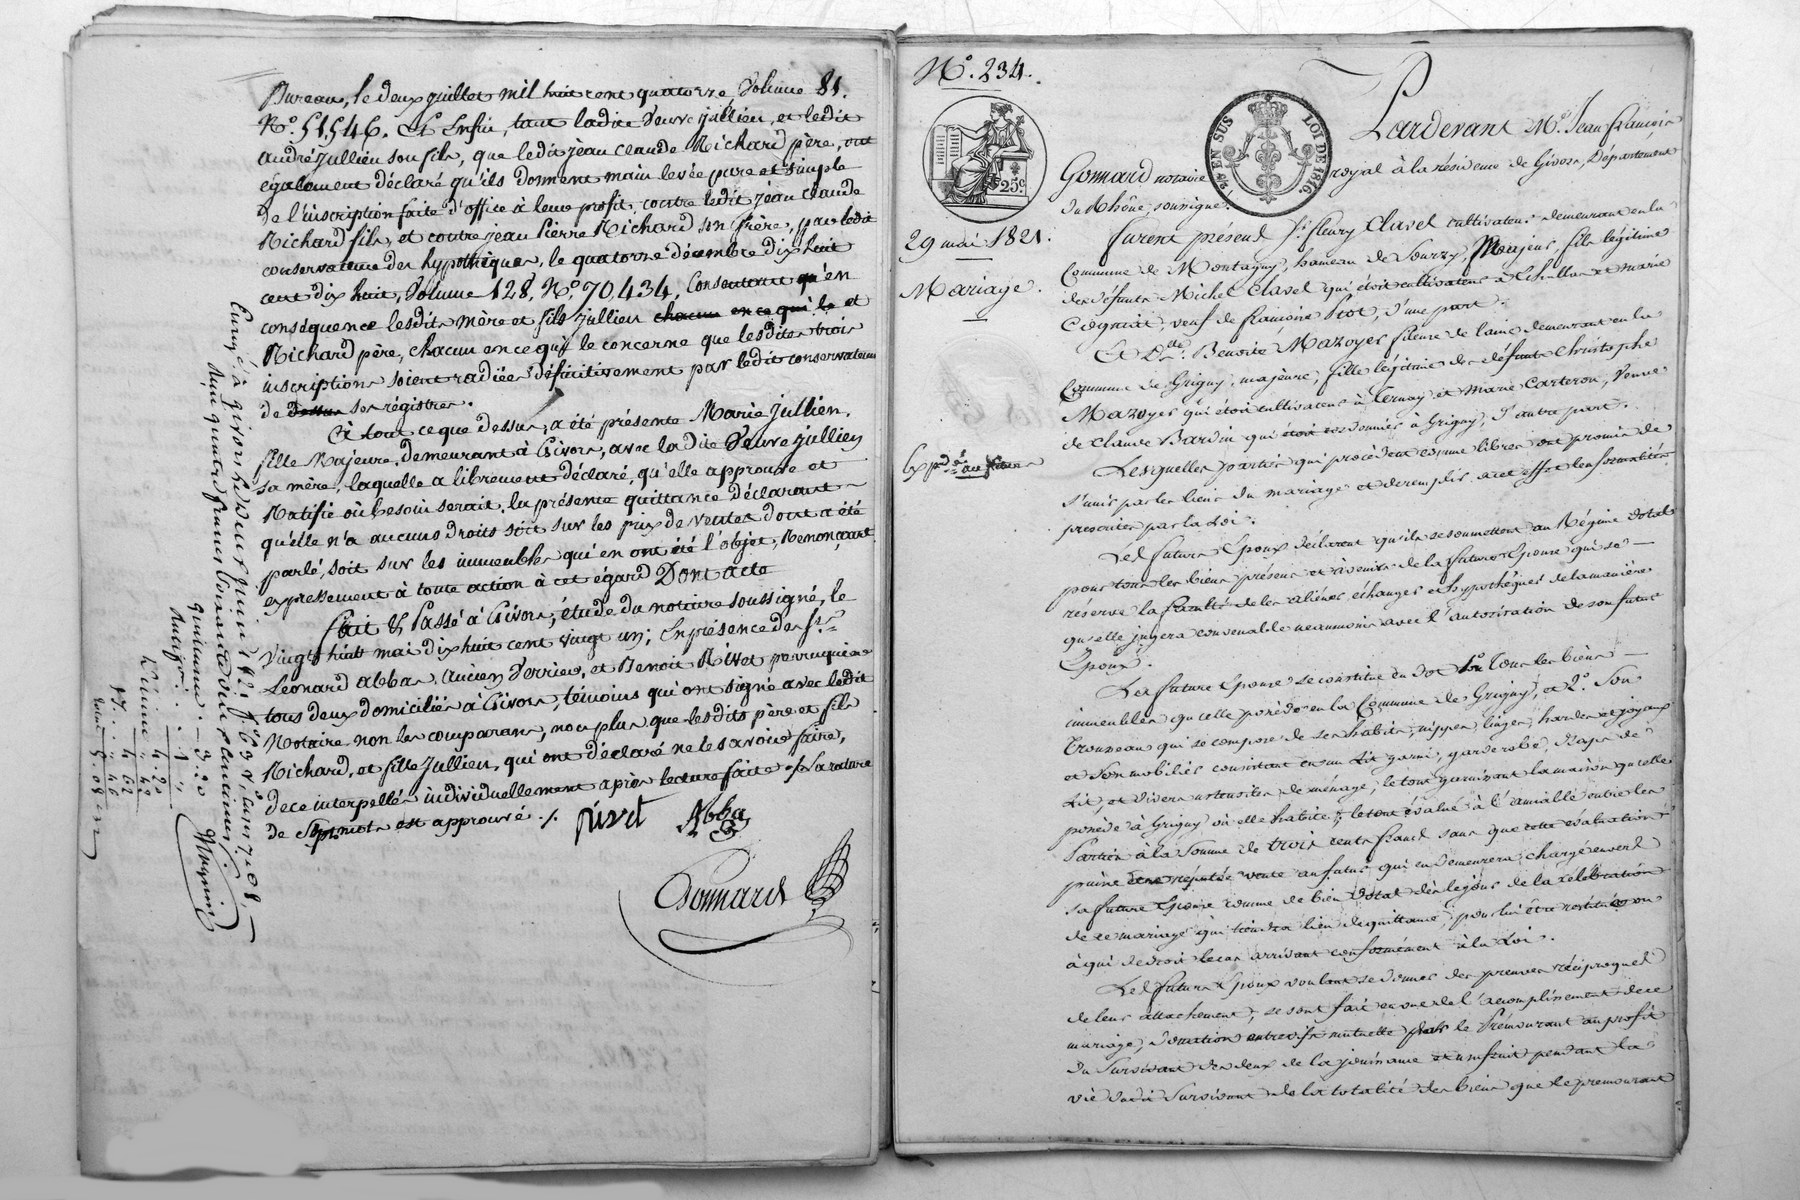 Bureau, le deux juillet mil huit cent quatorze, Volume 81.
N.° 51,546. Et Enfin, tant ladite veuve jullien, et ledit
andré jullien son fils, que ledit jean claude Richard père, ont
également déclaré qu'ils donnent main levée pure et simple
de l'inscription faite d'office à leur profit, contre ledit jean claude
Richard fils, et contre jean Pierre Richard son frère, par ledit
conservateur des hypothèques, le quatorze décembre dix huit
cent dix huit, Volume 128, N.° 70,434, Consentant qu'en
conséquence lesdits mère et fils jullien chacun en ce qui le et
Richard père, chacun en ce qui le concerne que lesdites trois
inscriptions soient radiées définitivement par ledit conservateur
de dessus ses régistres.
à tout ce que dessus, a été présente Marie jullien,
fille Majeure, demeurant à Givors, avec la dite Veuve jullien
sa mère, laquelle a librement déclaré, qu'elle approuve et
Ratifie où besoin serait, la présente quittance déclarant
qu'elle n'a aucuns droits soit sur les prix de ventes dont a été
parlé, soit sur les immeubles qui en ont été l'objet, Renonçant
expressement à toute action à cet égard Dont acte
Fait & Passé à Givors, étude du notaire soussigné, le
vingt huit mai dix huit cent vingt un; En présence de s.rs
Leonard abbas, ancien Verrier, et Benoit Rivet perruquier
tous deux domiciliés à Givors, témoins qui ont signé avec ledit
Notaire non les comparans, non plus que lesdits père et fils
Richard, et fille Jullien, qui ont déclaré ne le savoir faire,
de ce interpellés individuellement après lecture faite ./. La rature
de sept mots est approuvé ./.
rivet Abbas
Gonnard
N.° 234.
25c
EN SUS
LOI DE 1816.
29 mai 1821.
Mariage.
Pardevant M.e Jean françois
Gonnard notaire royal à la résidence de Givors, Département
du Rhône, soussigné.
furent présens s.r fleury Clavel cultivateur demeurant en la
Commune de Montagny, hameau de Sourzy, Majeur, fils légitime
des défunts Michel Clavel qui étoit cultivateur à Echallas et marie
veuf de françoise Piot, d'une part.
Et D.lle Benoite Mazoyer fileuse de laine demeurant en la
Commune de Grigny, majeure, fille légitime des défunts Christophe
Mazoyer qui étoit cultivateur à Ternay et marie Carteron, Veuve
de Claude Bardin qui étoit cordonnier à Grigny, d'autre part.
Lesquelles parties qui procèdent comme libres ont promis de
s'unir par les liens du mariage et de remplir à cet effet les formalités
prescrites par la Loi.
Les futurs Epoux déclarent qu'ils se soumettent au Régime dotal
pour tous les biens présens et à venir de la future Epouse qui se
réserve la faculté de les aliéner, échanger et hypothéquer de la manière
qu'elle jugera convenable neanmoins avec l'autorisation de son futur
Epoux.
La future Epouse se constitue en dot 1.° Tous les biens
immeubles qu'elle possède en la Commune de Grigny, et 2.° Son
Trousseau qui se compose de ses habits, nippes, linges, hardes et joyaux
et Son mobilier consistant en un Lit garni, garderobe, draps de
Lit et divers ustensiles de ménage, le tout garnissant la maison qu'elle
possède à Grigny où elle habite; le tout évalué à l'amiable entre les
Parties à la Somme de trois cents francs sans que cette évaluation
puisse être réputée vente au futur qui en demeurera chargé envers
sa future Epouse comme de bien dotal dès le jour de la célébration
de ce mariage qui tiendra lieu de quittance, pour lui être restitués ou
à qui de droit le cas arrivant conformément à la Loi.
Les futurs Epoux voulant se donner des preuves réciproques
de leur attachement, se sont fait en vue de l'accomplissement de ce
mariage, donation entrevifs mutuelle par le Prémourant au profit
du Survivant des deux de la jouissance et usufruit pendant la
vie dudit Survivant de la totalité des biens que le premourant